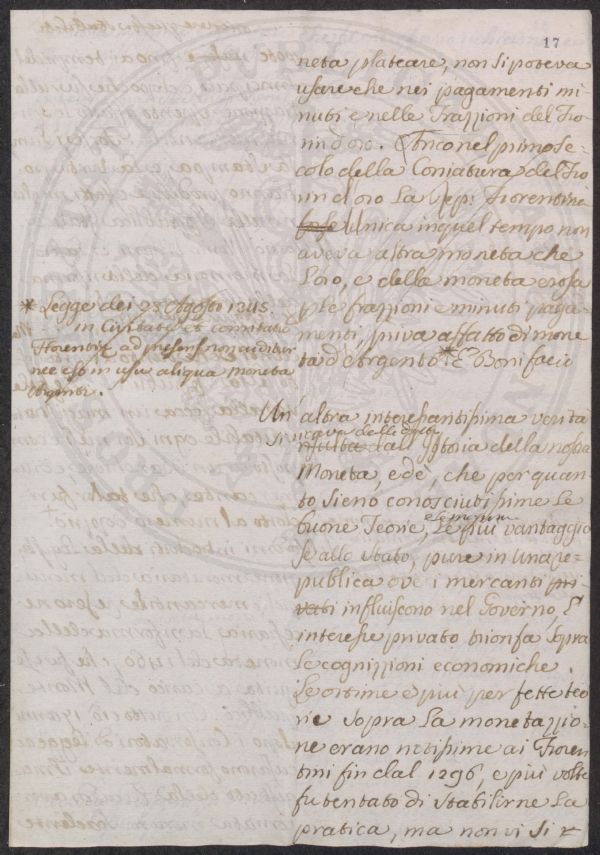 17
neta plateare, non si poteva
usare che nei pagamenti mi=
nuti e nelle Frazzioni del Fio=
rin d'oro. Anco nel primo Se=
colo della Coniatura del Fio
rin d'oro La Rep: Fiorentina
Unica in quel tempo non
aveva altra moneta che
L'oro, e della moneta erosa
p le frazzioni e minuti paga=
menti, priva affatto di mone
ta d'Argento * E Bonifacio
* Legge dei 23 Agosto 1345.
in Civitate et comitatu
Florentie ad presens non auditur
nec est in usu aliqua moneta
argenti.
Un' altra interessantissima verita
si ricava dalla dall' Istoria della nostra
Moneta, ed è, che per quan=
to sieno conosciutissime Le
buone Teorie, e le massime Le più vantaggio
se allo Stato, pure in una re=
publica ove i mercanti pri=
vati influiscono nel Governo, L'
interesse privato trionfa sopra
Le cognizzioni economiche.
Le ottime e più perfette teo
rie sopra La monetazzio=
ne erano notissime ai Fioren
tini fin dal 1296, e più volte
fu tentato di stabilirne La
pratica, ma non vi si